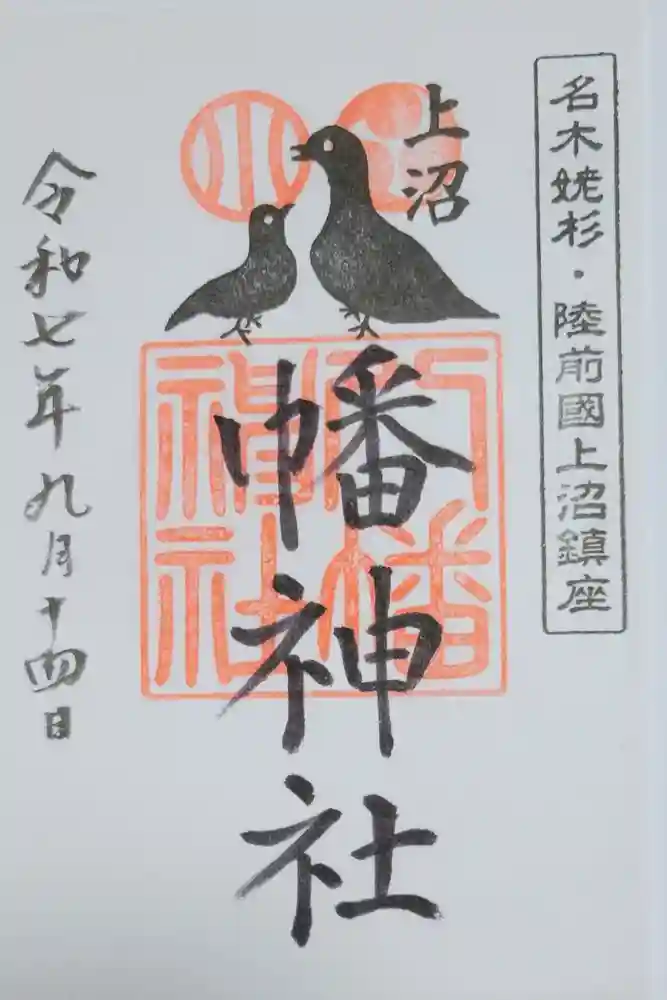 名木姥杉・陸前國上沼鎮座
上沼
幡神社
八幡
神社
令和七年九月十四日